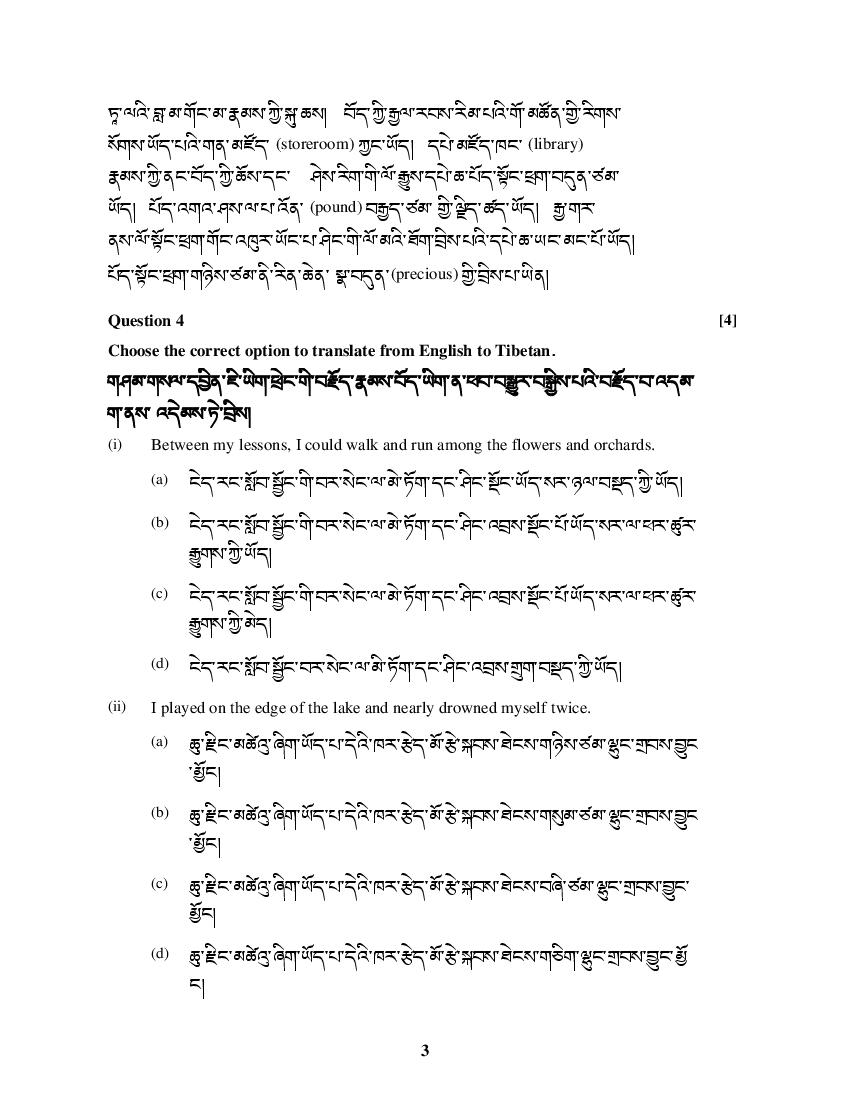 ཏཱ་ལའི་བླ་མ་གོང་མ་རྣམས་ཀྱི་སྐུ་ཆས། བོད་ཀྱི་རྒྱལ་རབས་རིམ་པའི་གོ་མཚོན་གྱི་རིགས་
སོགས་ཡོད་པའི་གན་མཛོད་ (storeroom) ཀྱང་ཡོད། དཔེ་མཛོད་ཁང་ (library)
རྣམས་ཀྱི་ནང་བོད་ཀྱི་ཆོས་དང་ ཤེས་རིག་གི་ལོ་རྒྱུས་དཔེ་ཆ་པོད་སྟོང་ཕྲག་བདུན་ཙམ་
ཡོད། པོད་འགའ་ཤས་ལ་པ་འོན་ (pound) བརྒྱད་ཙམ་ གྱི་ལྗིད་ཚད་ཡོད། རྒྱ་གར་
ནས་ལོ་སྟོང་ཕྲག་གོང་འཁུར་ཡོང་པ་ཤིང་གི་ལོ་མའི་ཐོག་བྲིས་པའི་དཔེ་ཆ་ཡང་མང་པོ་ཡོད།
པོད་སྟོང་ཕྲག་གཉིས་ཙམ་ནི་རིན་ཆེན་ སྣ་བདུན་(precious) གྱི་བྲིས་པ་ཡིན།
Question 4 [4]
Choose the correct option to translate from English to Tibetan.
གཤམ་གསལ་དབྱིན་ཇི་ཡིག་ཕྲེང་གི་བརྗོད་རྣམས་བོད་ཡིག་ན་ཕབ་བསྒྱུར་བསྒྲིས་པའི་བརྗོད་བ་འདམ་
ག་ནས་ འདེམས་ཏེ་བྲིས།
(i) Between my lessons, I could walk and run among the flowers and orchards.
(a) ངེད་རང་སློབ་སྦྱོང་གི་བར་སེང་ལ་མེ་ཏོག་དང་ཤིང་སྡོང་ཡོད་སར་ཉལ་བསྡད་ཀྱི་ཡོད།
(b) ངེད་རང་སློབ་སྦྱོང་གི་བར་སེང་ལ་མེ་ཏོག་དང་ཤིང་འབྲས་སྡོང་པོ་ཡོད་སར་ལ་ཕར་ཚུར་
རྒྱུགས་ཀྱི་ཡོད།
(c) ངེད་རང་སློབ་སྦྱོང་གི་བར་སེང་ལ་མེ་ཏོག་དང་ཤིང་འབྲས་སྡོང་པོ་ཡོད་སར་ལ་ཕར་ཚུར་
རྒྱུགས་ཀྱི་མེད།
(d) ངེད་རང་སློབ་སྦྱོང་བར་སེང་ལ་མི་ཏོག་དང་ཤིང་འབྲས་གྲུག་བསྡད་ཀྱི་ཡོད།
(ii) I played on the edge of the lake and nearly drowned myself twice.
(a) ཆུ་རྫིང་མཚེའུ་ཞིག་ཡོད་པ་དེའི་ཁར་རྩེད་མོ་རྩེ་སྐབས་ཐེངས་གཉིས་ཙམ་ལྷུང་གྲབས་བྱུང
་མྱོང།
(b) ཆུ་རྫིང་མཚེའུ་ཞིག་ཡོད་པ་དེའི་ཁར་རྩེད་མོ་རྩེ་སྐབས་ཐེངས་གསུམ་ཙམ་ལྷུང་གྲབས་བྱུང
་མྱོང།
(c) ཆུ་རྫིང་མཚེའུ་ཞིག་ཡོད་པ་དེའི་ཁར་རྩེད་མོ་རྩེ་སྐབས་ཐེངས་བཞི་ཙམ་ལྷུང་གྲབས་བྱུང་
མྱོང།
(d) ཆུ་རྫིང་མཚེའུ་ཞིག་ཡོད་པ་དེའི་ཁར་རྩེད་མོ་རྩེ་སྐབས་ཐེངས་གཅིག་ལྷུང་གྲབས་བྱུང་མྱོ
ང།
3